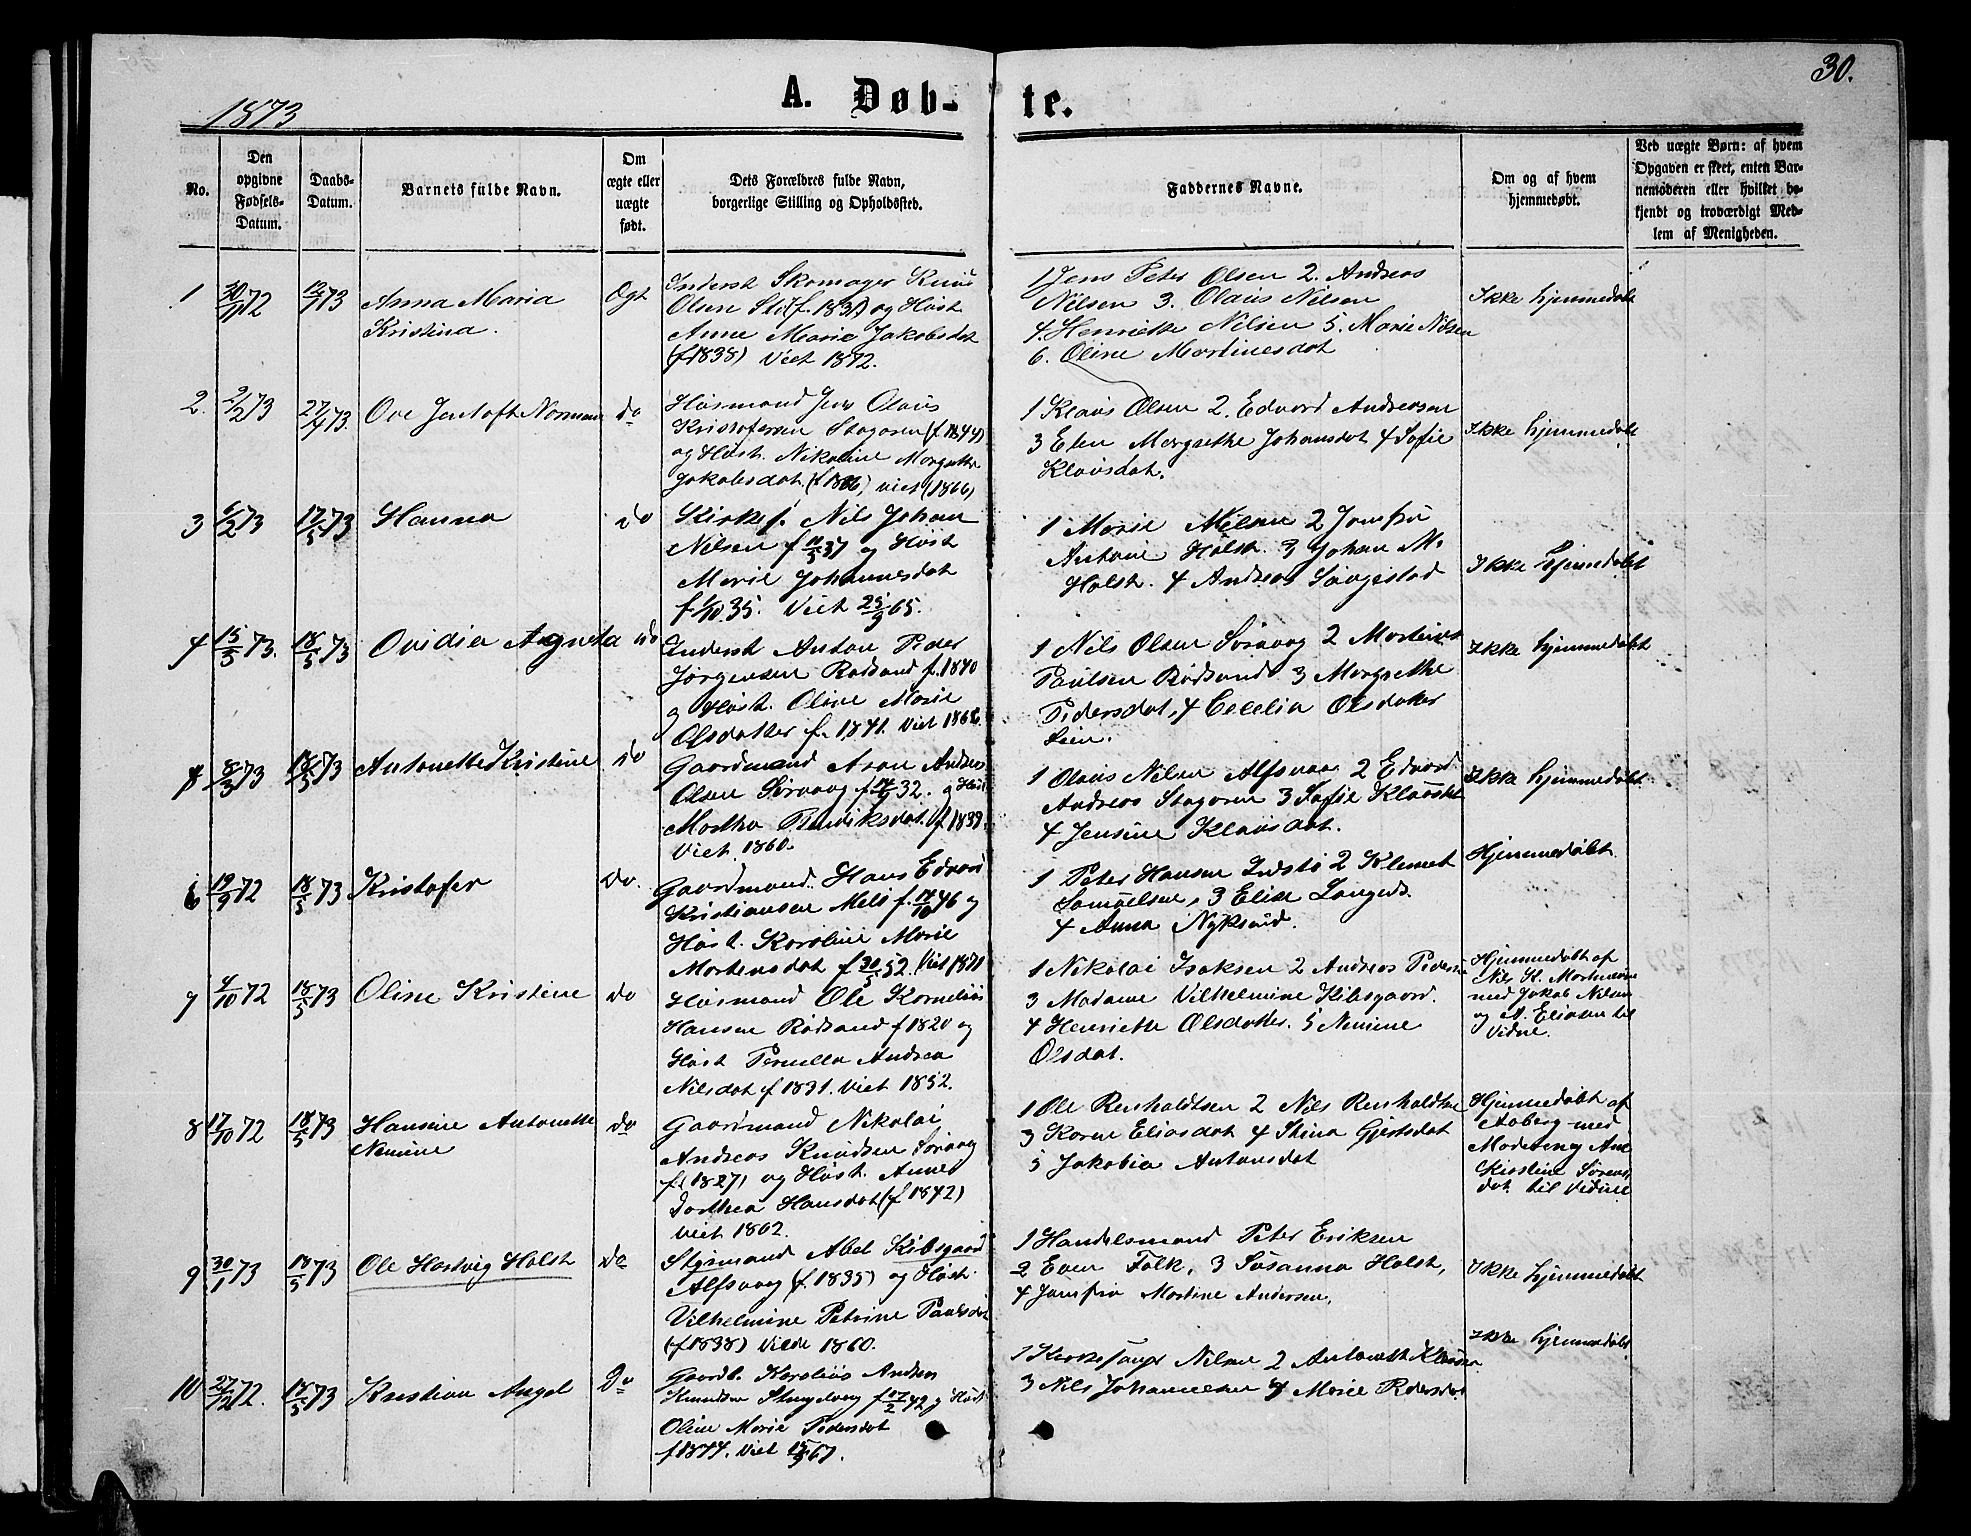 30.
1873
A. Døb-te.
No.
Den opgivne Fødsels-Datum.
Daabs-Datum.
Barnets fulde Navn.
Om ægte eller uægte født.
Dets Forældres fulde Navn, borgerlige Stilling og Opholdssted.
Faddernes Navne.
Om og af hvem hjemmedøbt.
Ved uægte Børn: af hvem Opgaven er skeet, enten Barnemoderen eller hvilket bekjendt og troværdigt Medlem af Menigheden.
1 73 Anna Maria
Kristina.
Ogt
Inderst Skomager Knud
Olsen og Host.
Anne Marie Jakobsdat
(f 1838) Viet 1872.
1 Jens Peter Olsen 2. Andreas
Nilsen 3. Olaus Nilsen
4. Henriette Nilsen 5. Marie Nilsen
6. Oline Martinesdat
Ikke hjemmedøbt
2. 2/2 73 27/4 73 Ove Jentoft Normann do
Husmand Jens Olaus
Kristofersen Stagoren (f. 1844)
og Host. Nikoline Margrethe
Jakobsdat. viet (1866)
1 Klaus Olsen 2. Edvard Andreasen
3 Elen Margrethe Johansdat 4 Sofie
Klausdat.
Ikke hjemmedøbt.
3 73 17/5 73 Hanna do
Kirkes. Nils Johan
Nilsen og Host
Marie Johannesdat
35. Viet 65.
1 Marie Nilsen 2 Jomfru
Antonie Holst. 3 Johan M.
Holst. 4 Andreas
Ikke hjemmedøbt
4 15/3 73. 18/5 73 Ovidia Agneta do
Inderst Anton Peder
Jørgensen Rødsand f. 1840
og Host. Oline Marie
Olsdatter f. 1841. Viet
1 Nils Olsen Sørvaag 2 Martinus
Paulsen Rødsand 3 Margrethe
Pedersdat, 4 Cecelia Olsdatter
Ikke hjemmedøbt
8/3 73 18/5 73 Antonette Kristine do
Gaardmand Aron Andreas
Olsen Sørvaag 32. og Host
Martha
Viet 1860.
1 Olaus Nilsen Alfsvaag 2 Edvard
Andreas Stagoren 3 Sofie Klausdat
4 Jensine Klausdat.
Ikke hjemmedøbt
6 19/9 72 18/5 73 Kristofer do.
Gaardmand. Hans Edvard
Kristiansen 46 og
Host. Karoline Marie
Mortensdat f 30/5 52. Viet 1871
1 Peter Hansen 2 Klemet
Samuelsen, 3 Elise
4 Anna Nyksund.
Hjemmedøbt
7 4/10 72 18/5 73 Oline Kristine do
Husmand Ole Kornelius
Hansen Rødsand f 1820 og
Host Pernilla Andrea
Nilsdat f 1831. Viet 1852.
1 Nikolai Isaksen 2 Andreas Peders
3 Madame Vilhelmine Kibsgaard.
4 Henriette Olsdatter. 5 Nemine
Olsdat.
Hjemmedøbt af
Nils
med Jakob Nilsen
og A. Eliasen til
Vidne.
8 17/10 72 18/5 73 Hansine Antonette
Nemine
do
Gaardmand Nikolai
Andreas Knudsen Sørvaag
f. (1827) og Host. Anne
Dorthea Hansdat (f 1842)
viet 1862.
1 Ole Renholdtsen 2 Nils Renholdtsen
3 Karen Eliasdat 4 Stina Gjertsdat
5 Jakobia Antonsdat
Hjemmedøbt af
Aaberg med
Ane
Kirstine Sørens
dat. til Vidne
9 30/1 73 18/5 73 Ole Hartvig Holst do
Styrmand Abel Kibsgaard
Alfsvaag (f. 1835) og Host.
Vilhelmine Petrine Paulsdat
(f 1838) Viede 1860.
1 Handelsmand Peter Eriksen
2 Even Falk, 3 Susanna Holst,
4 Jomfru Martine Andersen.
Ikke hjemmedøbt
10 27/12 72. 18/5 73 Kristian Angel Do
Gaardb. Karelius Andreas
42 og Host
Oline Marie Pedersdat
f 1844. Viet 67.
1 Kirkesanger Nilsen 2 Antonette Klausen
3 Nils Johannesen 4 Marie Pedersdat
Ikke hjemmedøbt.